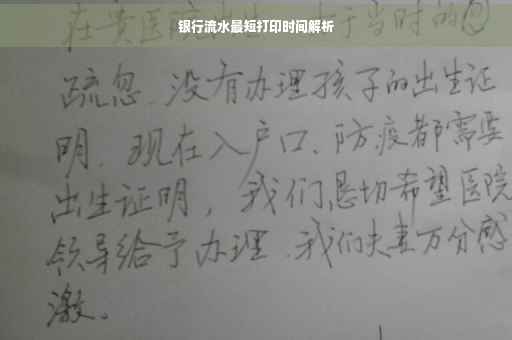 银行流水最短打印时间解析
在贵医院出生,由于当时的
疏忽、没有办理孩子的出生证
明、现在入户口、防疫都需要
出生证明,我们恳切希望医院
领导给予办理、我们夫妻万分感
激。